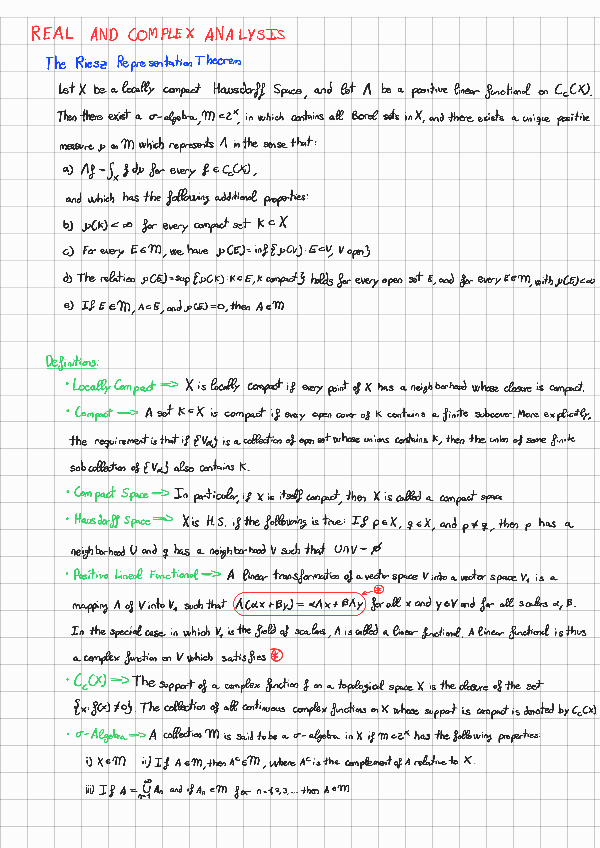 REAL AND COMPLEX ANALYSIS
The Riesz Representation Theorem
Let X be a locally compact Hausdorff Space, and let Λ be a positive linear functional on Cc(X).
Then there exist a σ-algebra, M ⊂ 2^X, in which contains all Borel sets in X, and there exists a unique positive
measure μ on M which represents Λ in the sense that:
a) Λf = ∫_X f dμ for every f ∈ Cc(X),
and which has the following additional properties:
b) μ(K) < ∞ for every compact set K ⊂ X
c) For every E ∈ M, we have μ(E) = inf{μ(V) : E ⊂ V, V open}
d) The relation μ(E) = sup{μ(K) : K ⊂ E, K compact} holds for every open set E, and for every E ∈ M, with μ(E) < ∞
e) If E ∈ M, A ⊂ E, and μ(E) = 0, then A ∈ M
Definitions:
• Locally Compact => X is locally compact if every point of X has a neighborhood whose closure is compact.
• Compact => A set K ⊂ X is compact if every open cover of K contains a finite subcover. More explicitly,
the requirement is that if {Vα} is a collection of open set whose unions contains K, then the union of some finite
subcollection of {Vα} also contains K.
• Compact Space => In particular, if X is itself compact, then X is called a compact space
• Hausdorff Space => X is H.S. if the following is true: If p ∈ X, q ∈ X, and p ≠ q, then p has a
neighborhood U and q has a neighborhood V such that U ∩ V = ∅
• Positive Lineal Functional => A linear transformation of a vector space V into a vector space V₁ is a
mapping Λ of V into V₁ such that Λ(αx + βy) = αΛx + βΛy * for all x and y ∈ V and for all scalars α, β.
In the special case in which V₁ is the field of scalars, Λ is called a linear functional. A linear functional is thus
a complex function on V which satisfies *
• Cc(X) => The support of a complex function f on a topological space X is the closure of the set
{x : f(x) ≠ 0}. The collection of all continuous complex functions on X whose support is compact is denoted by Cc(X)
• σ-Algebra => A collection M is said to be a σ-algebra in X if M ⊂ 2^X has the following properties:
i) X ∈ M ii) If A ∈ M, then A^c ∈ M, where A^c is the complement of A relative to X.
iii) If A = ⋃_{n=1}^∞ An and if An ∈ M for n = 1, 2, 3, ... then A ∈ M